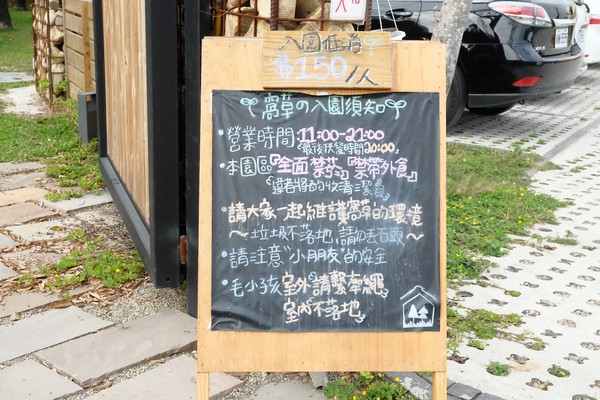 入園低消
$150/人
窩草の入園須知
·營業時間:11:00-21:00
最後供餐時間20:00
·本園區『全面禁菸』『禁帶外食』
違者將酌收清潔費
·請大家一起維護窩草的環境
～垃圾不落地,請勿丟石頭～
·請注意"小朋友"的安全
·毛小孩室外請繫牽繩
室內不落地